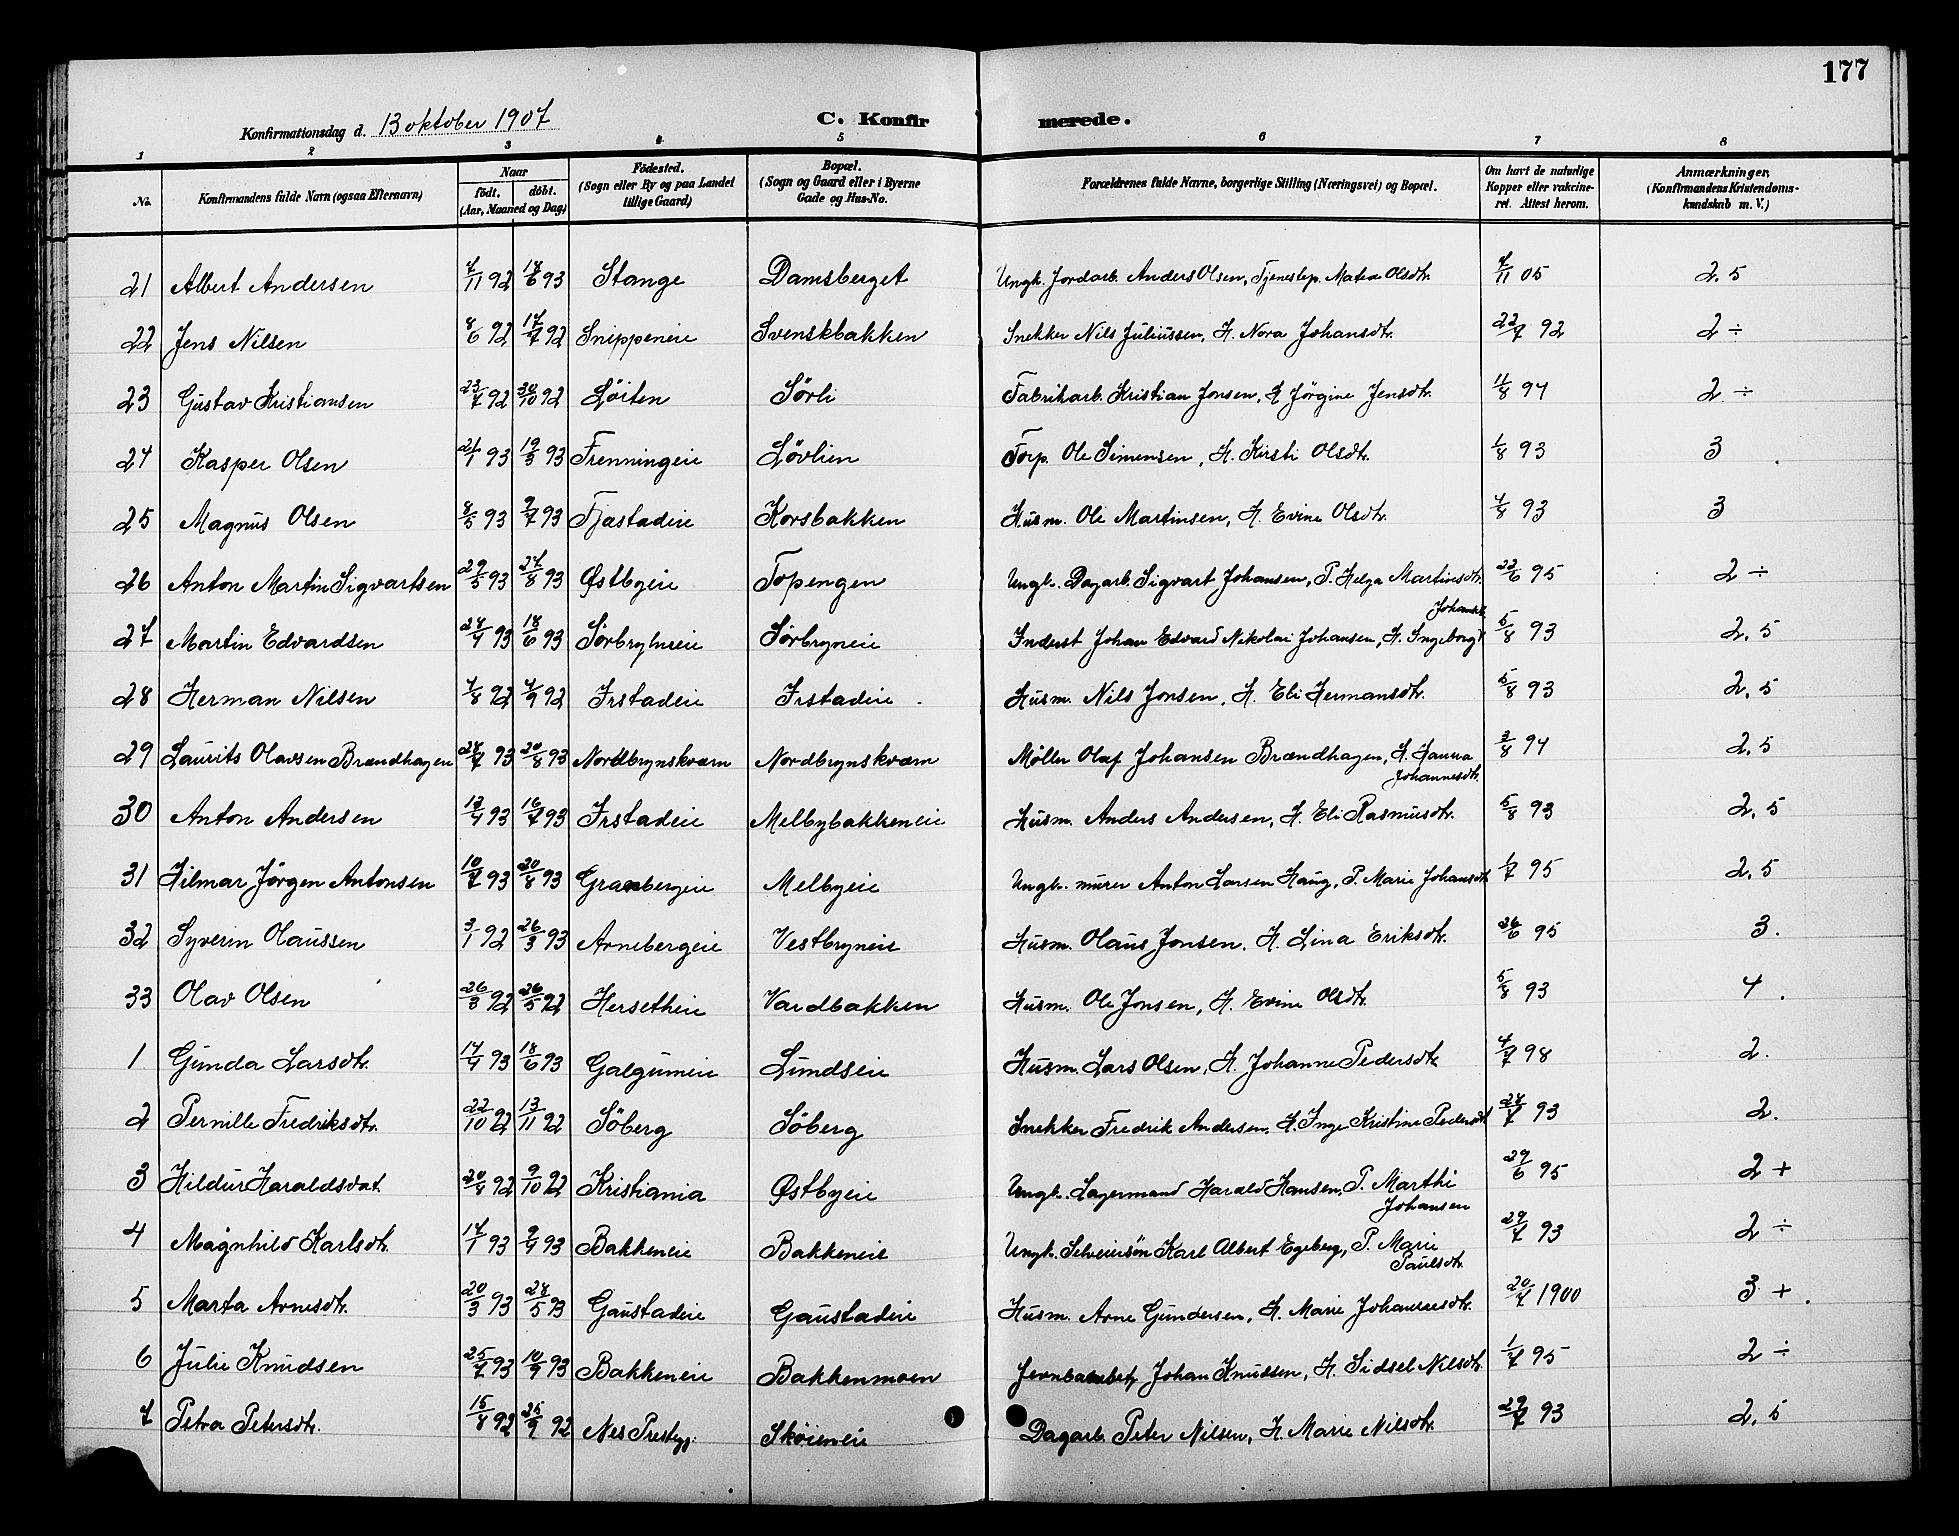 177
Konfirmationsdag d. 13 oktober 1907 C. Konfirmerede.
1 2 3 4 5 6 7 8
No. Konfirmandens fulde Navn (ogsaa Efternavn) Naar födt. döbt. (Aar, Maaned og Dag) Födested. (Sogn eller By og paa Landet tillige Gaard) Bopæl. (Sogn og Gaard eller i Byerne Gade og Hus-No. Forældrenes fulde Navne, borgerlige Stilling (Næringsvei) og Bopæl. Om havt de naturlige Kopper eller vakcineret. Attest herom. Anmærkninger, (Konfirmandens Kristendomskundskab m. V.)
21 Albert Andersen 7/11 92 18/6 93 Stange Damsberget Ungk. Jordarb. Anders Olsen, Tjenestep. Matea Olsdtr. 4/11 05 2.5
22 Jens Nilsen 8/6 92 17/7 92 Snippeneie Svenskbakken Snekker Nils Juliussen, H. Nora Johansdtr. 22/7 92 2 ÷
23 Gustav Kristiansen 23/7 92 30/10 92 Löiten Sörli Fabrikarb. Kristian Jonsen, H Jörgine Jensdtr. 11/8 94 2 ÷
24 Kasper Olsen 21/1 93 19/3 93 Frenningeie Lövlien Torp. Ole Simensen, H. Kirsti Olsdtr. 1/8 93 3
25 Magnus Olsen 8/5 93 9/7 93 Fjæstadeie Korsbakken Husm. Ole Martinsen, H. Evine Olsdtr. 4/8 93 3
26 Anton Martin Sigvartsen 29/5 93 27/8 93 Østbyeie Topengen Ungk. Dagarb. Sigvart Johansen, P. Helga Martinsdtr. 22/6 95 2 ÷
27 Martin Edvardsen 24/4 93 18/6 93 Sörbryneie Sörbryneie Inderst Johan Edvard Nikolai Johansen, H. Ingeborg Johansdtr. 5/8 93 2,5
28 Herman Nilsen 7/8 92 4/9 92 Irstadeie Irstadeie Husm. Nils Jonsen, H. Eli Hermansdtr. 5/8 93 2,5
29 Laurits Olavsen Brændhagen 24/7 93 20/8 93 Nordbrynskværn Nordbrynskværn Möller Olaf Johansen Brændhagen, H. Hanna Johannesdtr. 3/8 94 2,5
30 Anton Andersen 13/4 93 16/7 93 Irstadeie Melbybakkeneie Husm. Anders Andersen, H. Eli Rasmusdtr. 5/8 93 2,5
31 Hilmar Jörgen Antonsen 10/7 93 20/8 93 Granbergeie Melbyeie Ungk. murer Anton Larsen Haug, P. Marie Johansdtr. 1/7 95 2,5
32 Syverin Olaussen 3/1 92 26/3 93 Arnebergeie Vestbryneie Husm. Olaus Jonsen, H. Lina Eriksdtr. 26/6 95 3.
33 Olav Olsen 26/3 92 26/5 92 Hersetheie Vardbakken Husm. Ole Jonsen, H. Evine Olsdtr. 5/8 93 4.
1 Gunda Larsdtr. 17/4 93 18/6 93 Galgumeie Lundseie Husm. Lars Olsen, H. Johanne Pedersdtr. 4/7 98 2.
2 Pernille Fredriksdtr. 22/10 92 13/11 92 Söberg Söberg Snekker Fredrik Andersen, H. Inge Kristine Pedersdtr 24/7 93 2.
3 Hildur Haraldsdat 20/8 92 9/10 92 Kristiania Østbyeie Ungk. Lagermand Harald Hansen, P. Marthe Johansen 29/6 95 2 +
4 Magnhild Karlsdtr. 17/1 93 9/4 93 Bakkeneie Bakkeneie Ungk. Selveiersön Karl Albert Egeberg, P. Marie Paulsdtr. 29/7 93 2 ÷
5 Marta Arnesdtr. 20/3 93 28/5 93 Gaustadeie Gaustadeie Husm. Arne Gundersen, H. Marie Johannesdtr. 20/7 1900 3 +
6 Julie Knudsen 25/7 93 10/9 93 Bakkeneie Bakkenmoen Jernbanebetj. Johan Knudsen, H. Sidsel Nilsdtr. 1/7 95 2 ÷
7 Petra Petersdtr. 15/8 92 25/9 92 Nes Prestegj. Sköieneie Dagarb. Peter Nilsen, H. Marie Nilsdtr. 29/7 93 2,5